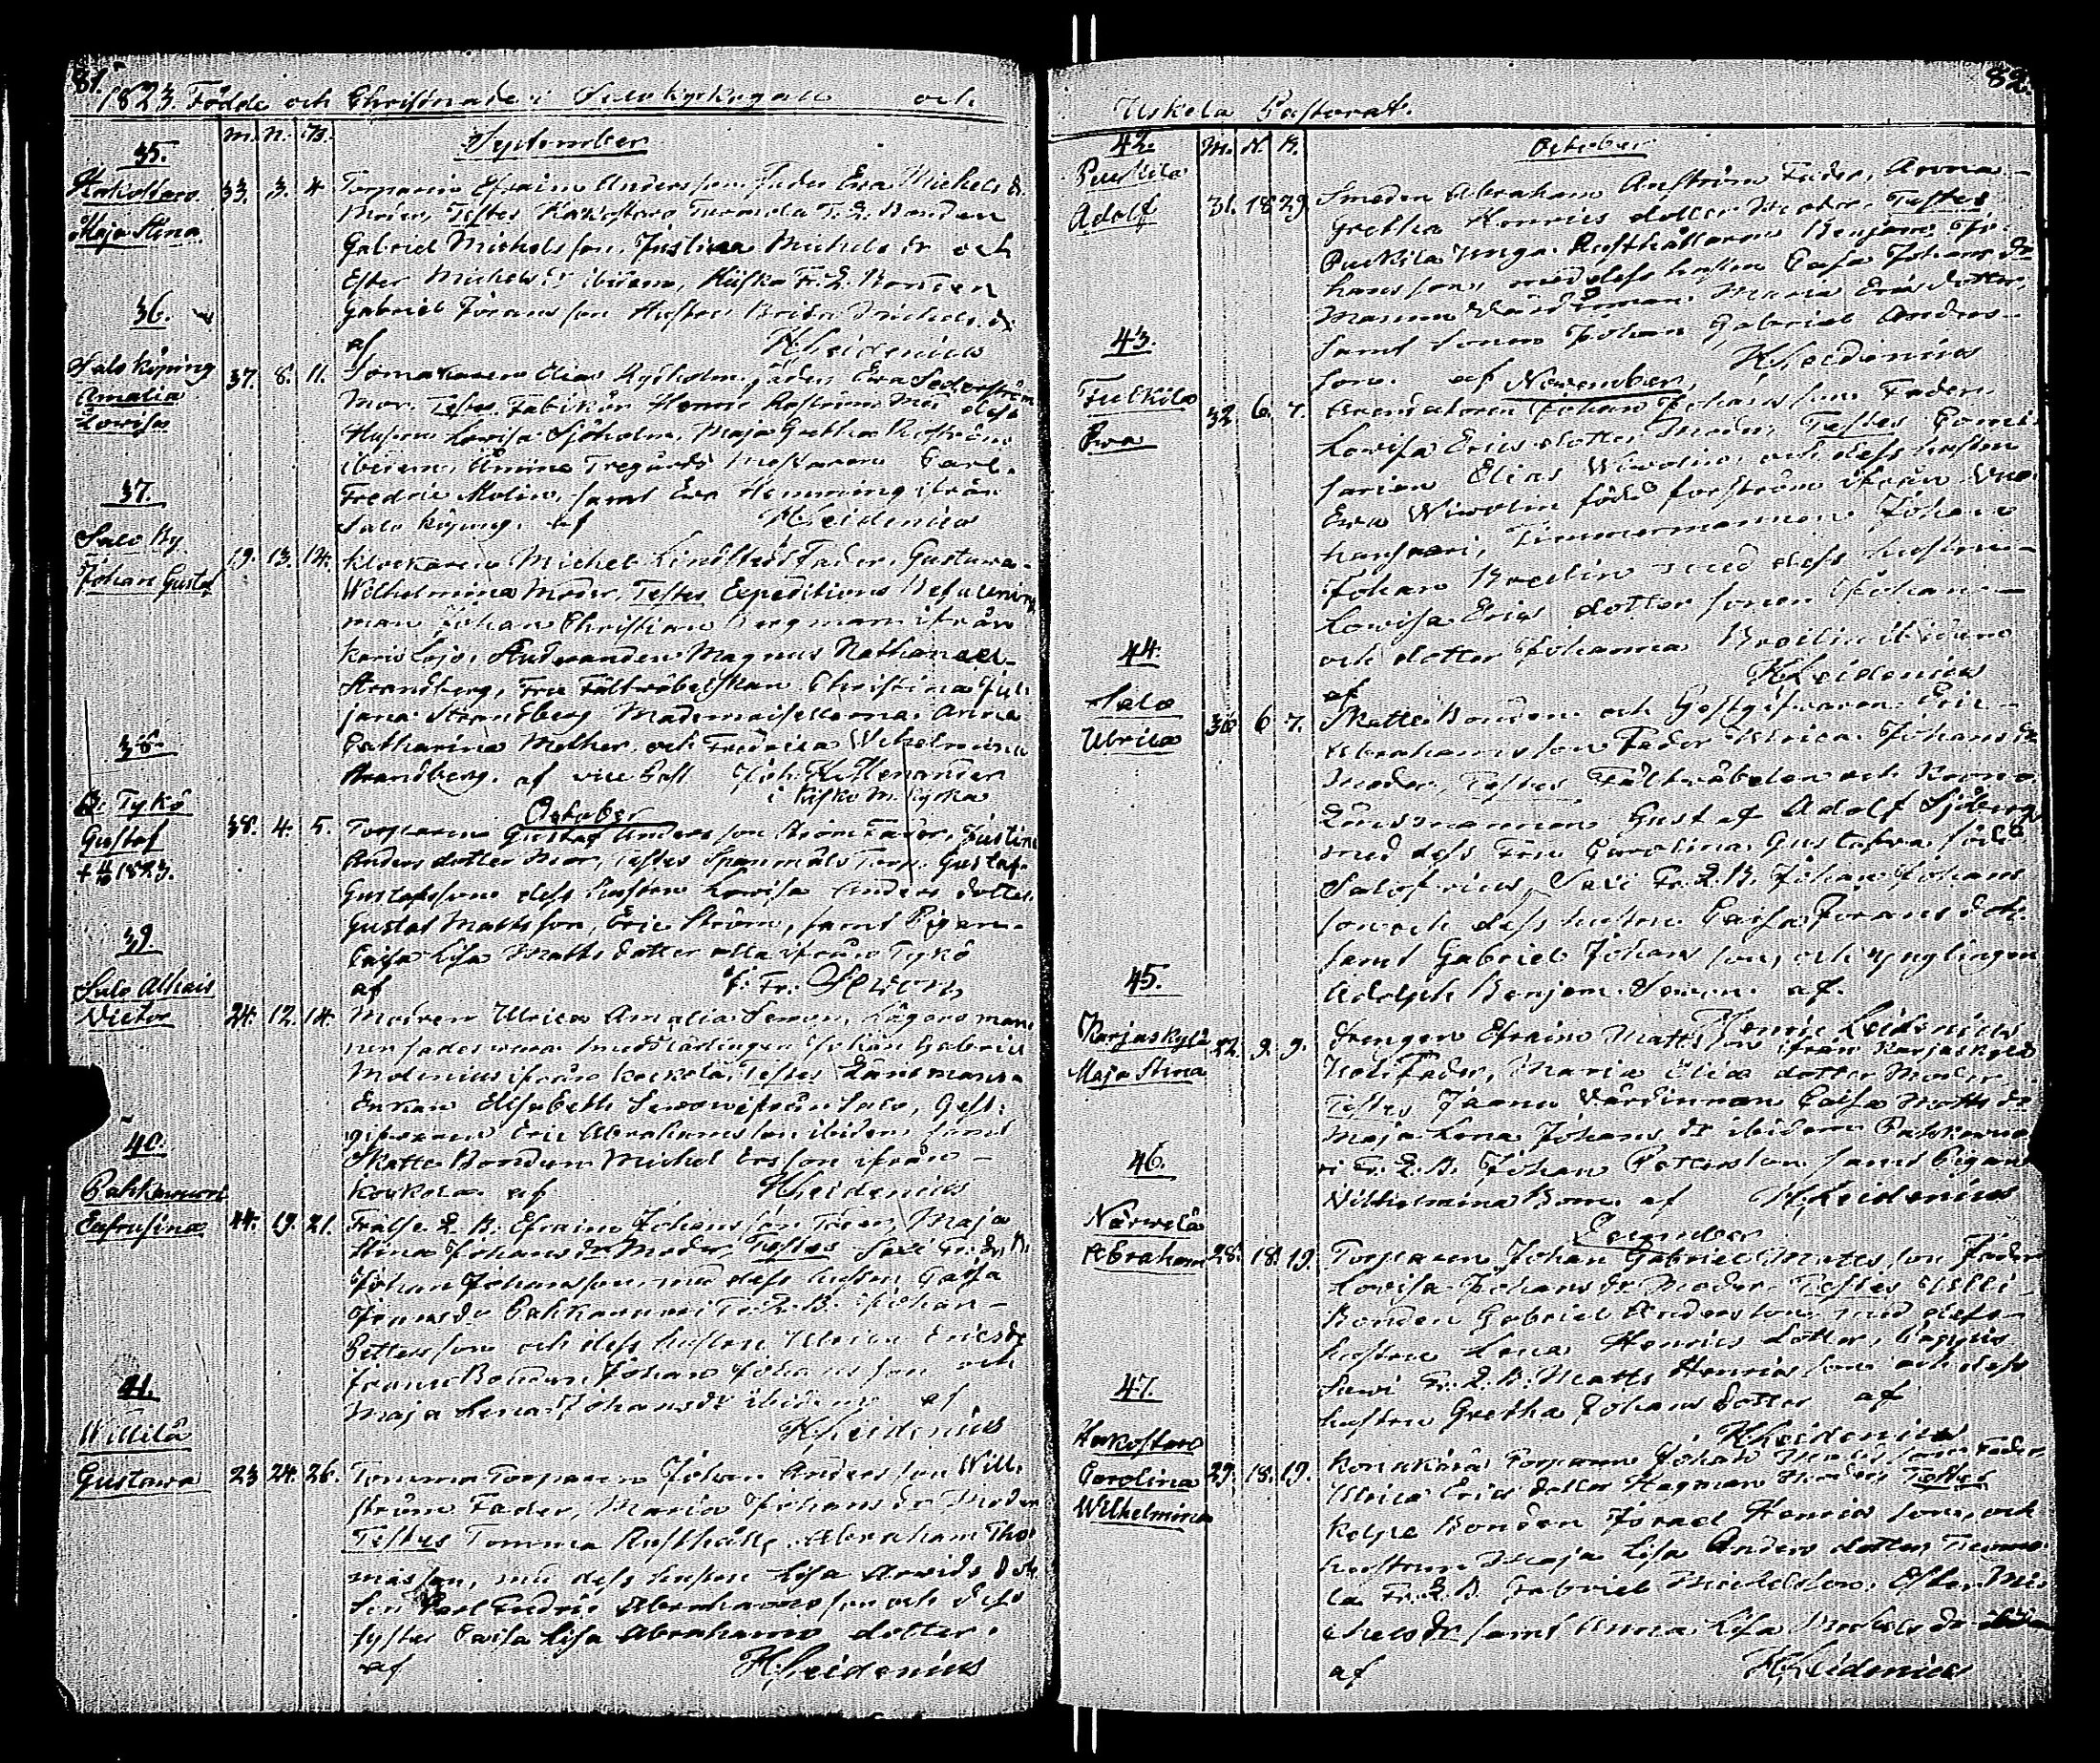 81.
1823. Födde och Christnade i Salo kyrkugall och
M. N. B.
September
35.
Kakostaro
Maja Stina
33. 3. 4
Torparen Efraim Andersson Fader Eva Michels dr
Moder, Testes Kakostaro Turmola F. L. Bonden
Gabriel Michelsson, Justina Michels dr och
Ester Michels dr ibidem, Kisko Fr. L. Bonden
Gabriel Jöransson Hustru Brita Michels dr
af HLeidenius
36.
Salo köping
Amalia
Lovisa
37. 8. 11.
Elias Fader Eva Sederström
Mor. Testes Henric Aström med dess
Hustru Lovisa Sjöholm, Maja Gretha
ibidem, Åminne Tregårds Mästaren Carl
Fredric Molin, samt Eva Hemming ifrån
Salo köping. af HLeidenius
37.
Salo By
Johan Gustaf
19. 13. 14.
Klockaren Michel Lindstedt Fader, Gustava
Wilhelmina Moder, Testes Expeditions Befallnings
man Johan Christian Bergman ifrån
Karis Lojo, Studeranden Magnus Nathanael
Strandberg, Fru Fältväbelskan Christina Jul
jana Strandberg Mademoisellerna Anna
Catharina Melker och Fredrica Wilhelmina
Strandberg. af vice Past Joh. K. Menander
i Kisko M. Kyrka
October
38.
Tykö
Gustaf
1823.
38. 4. 5.
Torparen Gustaf Andersson Ström Fader, Justina
Anders dotter Mor, Testes Torp. Gustaf
Gustafsson dess hustru Lovisa Anders dotter
Gustaf Mattsson, Eric Ström, samt Pigan
Caisa Lisa Matts dotter alla ifrån Tykö
af F. Fr. Sewon
39.
Salo Alhais
Victor
24. 12. 14.
Modren Ulrica Amalia Sewon, Lägersman
nen fader vara Smedslärlingen Johan Gabriel
Molenius ifrån Kockola, Testes Länsmans
Enkan Elisabeth Sewon ifrån Salo, Gest:
gifvaren Eric Abrahamsson ibidem samt
Skatte Bonden Michel Ersson ifrån
Kockola af HLeidenius
40.
Pahkavuori
Eufrusina
44. 19. 21.
Frälse L. B. Efraim Johansson Fader, Maja
Stina Johans dr Moder, Testes Savi Fr. L. B.
Johan Johansson med dess hustru Caisa
Jörans dr Pahkavuori Fr. L. B. Johan
Pettersson och dess hustru Ulrica Erics dr
Bonden Johan Johansson och
Maja Lena Johans dr ibidem af
HLeidenius
41.
Willilä
Gustava
23 24. 26.
Tomma Torparen Johan Andersson Will-
ström Fader, Maria Johans dr Moder
Testes Tomma Rusthåll. Abraham Tho
masson, med dess hustru Lisa Arvids dott
Son Carl Fredric Abrahamsson och dess
syster Caisa Lisa Abrahams dotter.
af HLeidenius
82.
Uskela Pastorat.
M. N. B.
October
42.
Puckila
Adolf
31. 18 29
Smeden Abraham Anström Fader, Anna
Gretha Henrics dotter Moder. Testes
Puckila Unga Rusthållaren Benjam. Jo
hansson, med dess hustru Caisa Johans dr
Mannu Värdinnan Maria Erics dotter
samt sonen Johan Gabriel Anders-
son. af HLeidenius
November
43.
Fulkila
Eva
32 6. 7.
Arendatoren Johan Johansson Fader
Lovisa Erics dotter Moder, Testes Comis
sarien Elias Wirolin, och dess hustru
Eva Wirolin född Forström ifrån
Timmermannen Johan
Johan Brelin med dess hustru
Lovisa Erics dotter sonen Johan
och dotter Johanna Brelin ibidem
af HLeidenius
44.
Salo
Ulrica
36 6 7.
Skatte Bonden och Gestgifvaren Eric
Abrahamsson Fader Ulrica Johans dr
Moder, Testes Fältväbelen och Krono
Länsmannen Gustaf Adolf Sjöberg
med dess Fru Carolina Gustafva född
Salofrius, Savi Fr. L. B. Johan Johans
son och dess hustru Caisa Jörans dott.
samt Gabriel Johansson, och ynglingen
Adolph Benjam. Sewon. af.
Henric Leidenius
45.
Karjaskylä
Maja Stina
22. 9. 9.
Drengen Efraim Mattsson ifrån Karjaskylä
Fader, Maria Elias dotter Moder
Testes Jaanu Värdinnan Caisa Matts dr
Maja Lena Johans dr ibidem Pahkavuo
ri Fr. L. B. Johan Petersson samt Pigan
Wilhelmina Bom. af HLeidenius
December
46.
Närvelä
Abraham
28. 18. 19.
Torparen Johan Gabriel Mattsson Fader
Lovisa Johans dr Moder. Testes Willi
Bonden Gabriel Andersson med dess
hustru Lena Henrics dotter,
Savi Fr. L. B. Matts Henricsson och dess
hustru Gretha Johans dotter af
HLeidenius
47.
Kakostaro
Carolina
Wilhelmina
29. 18. 19.
Torparen Johan Fader
Ulrica Erics dotter Hagman Moder Testes
Kolpe Bonden Israel Henricsson, och
hustrun Maja Lisa Anders dotter, Turmo
la Fr. L. B. Gabriel Michelsson, Ester Mi
chels dr samt Anna Lisa Michels dr
af HLeidenius